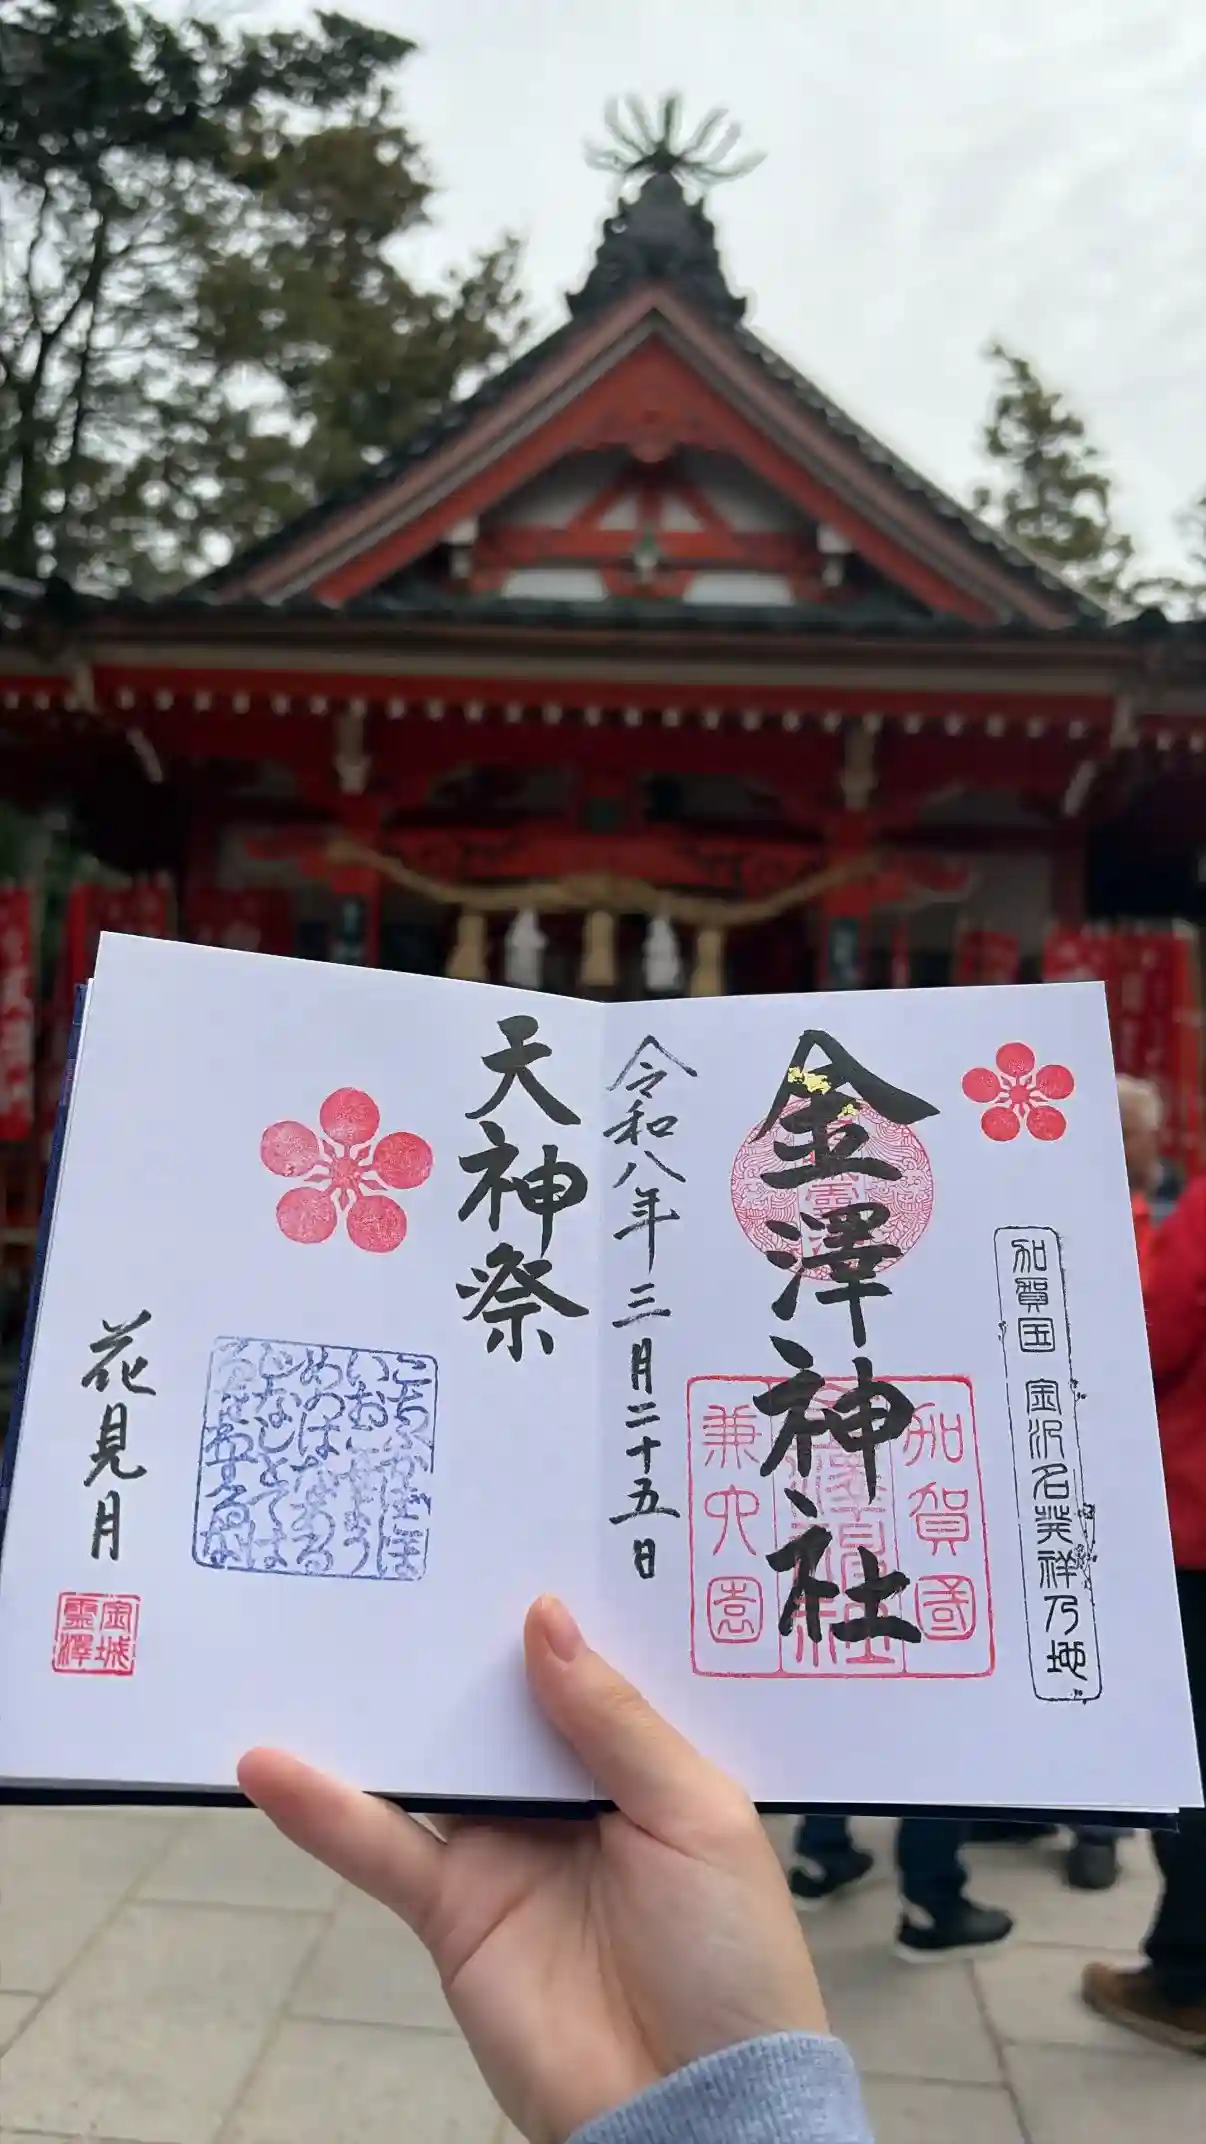 加賀国 金沢名発祥乃地
金澤神社
加賀國
兼六園
令和八年三月二十五日
天神祭
こちふかば
にほひおこせよ
うめのはな
あるじなしとて
はるなわすれそ
花見月
金城
霊澤